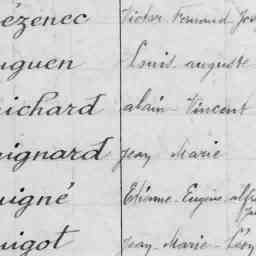 ézenec Victor Fernand Jos
uguen Louis auguste
uichard alain - Vincent
uignard Jean Marie
uigné Etienne - Eugène alf
uigot Jean - Marie - Léon